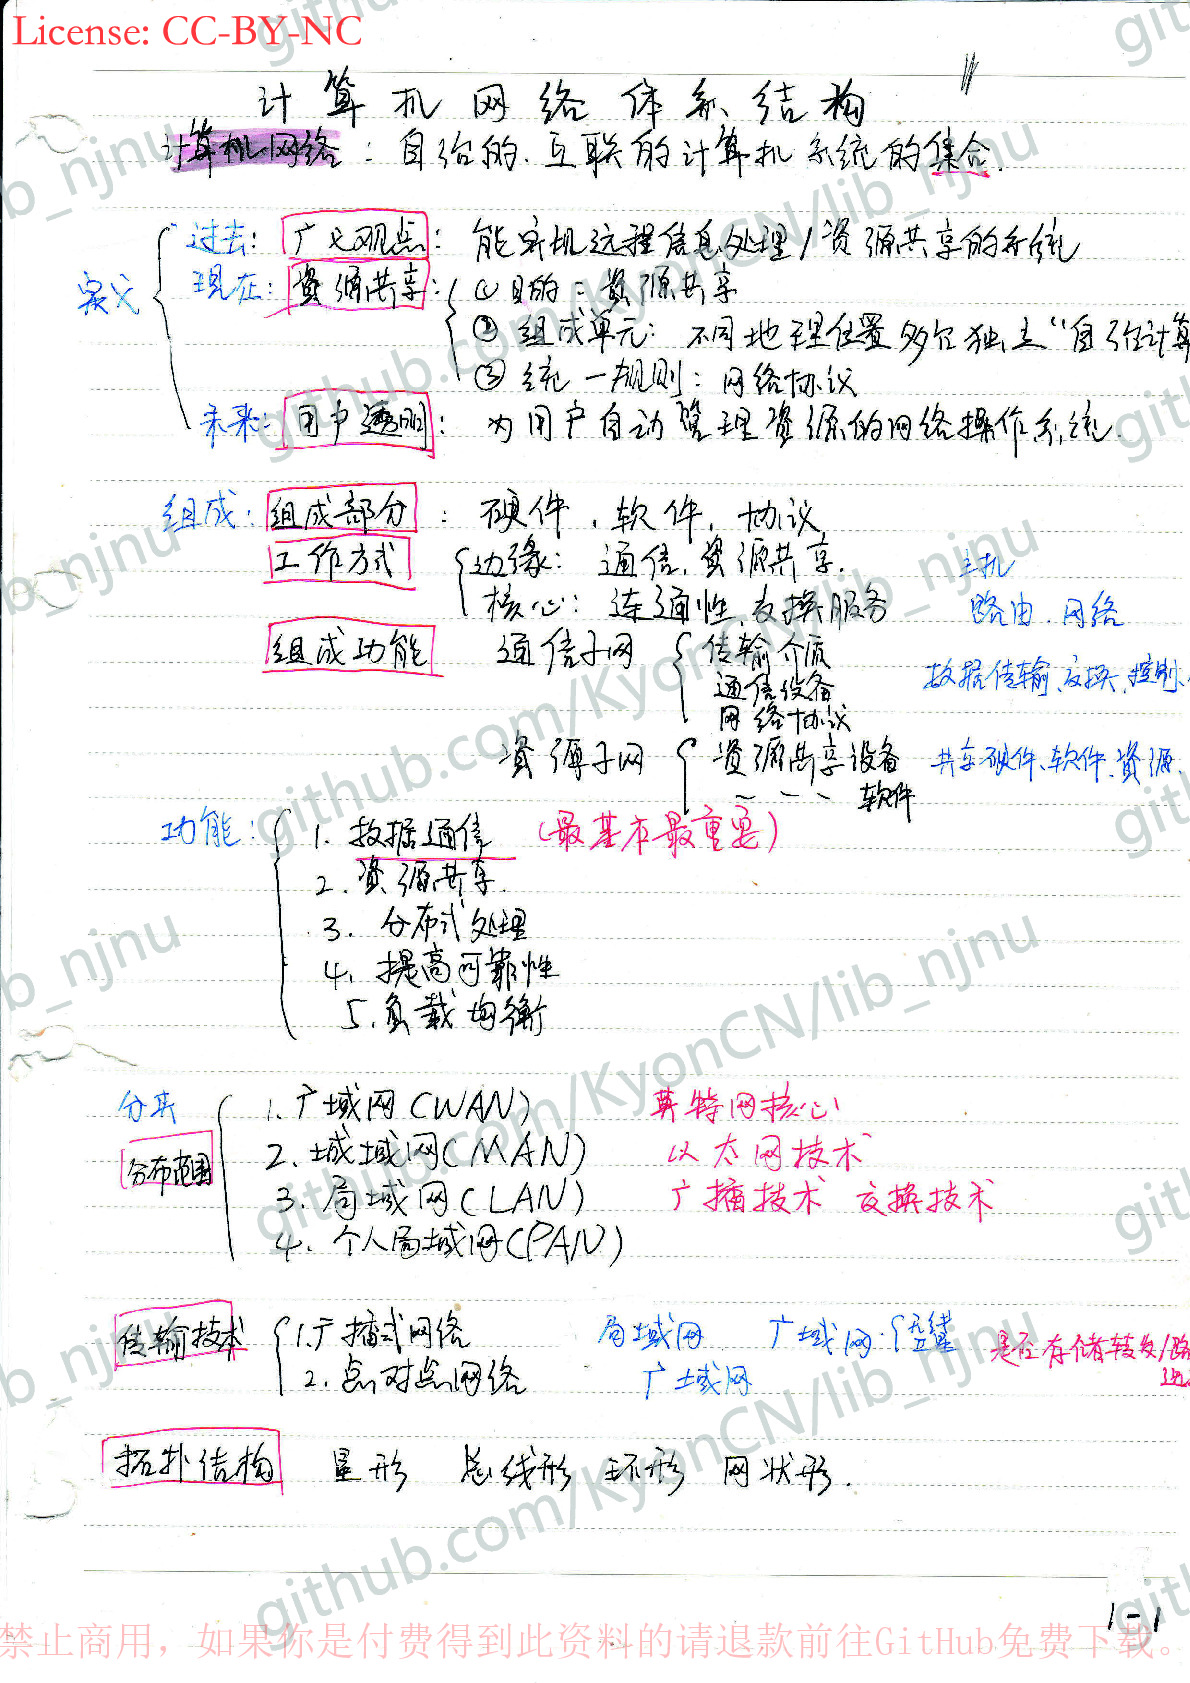 License: CC-BY-NC
计算机网络体系结构
计算机网络：自治的、互联的计算机系统的集合.
定义
过去：广义观点：能实现远程信息处理/资源共享的系统
现在：资源共享：①目的：资源共享
②组成单元：不同地理位置多台独立“自治计算
③统一规则：网络协议
未来：用户透明：为用户自动管理资源的网络操作系统.
组成：组成部分：硬件、软件、协议
工作方式 边缘：通信、资源共享. 主机
核心：连通性、交换服务 路由、网络
组成功能 通信子网 传输介质
通信设备 数据传输、交换、控制、
网络协议
资源子网 资源共享设备 共享硬件、软件、资源.
软件
功能：1. 数据通信 (最基本最重要)
2. 资源共享.
3. 分布式处理
4. 提高可靠性
5. 负载均衡
分类 1. 广域网(WAN) 英特网核心
分布范围 2. 城域网(MAN) 以太网技术
3. 局域网(LAN) 广播技术 交换技术
4. 个人局域网(PAN)
传输技术 1. 广播式网络 局域网 广域网：无线 是否存储转发/路
2. 点对点网络 广域网
拓扑结构 星形 总线形 环形 网状形.
1-1
禁止商用，如果你是付费得到此资料的请退款前往GitHub免费下载。
github.com/KyonCN/lib_njnu